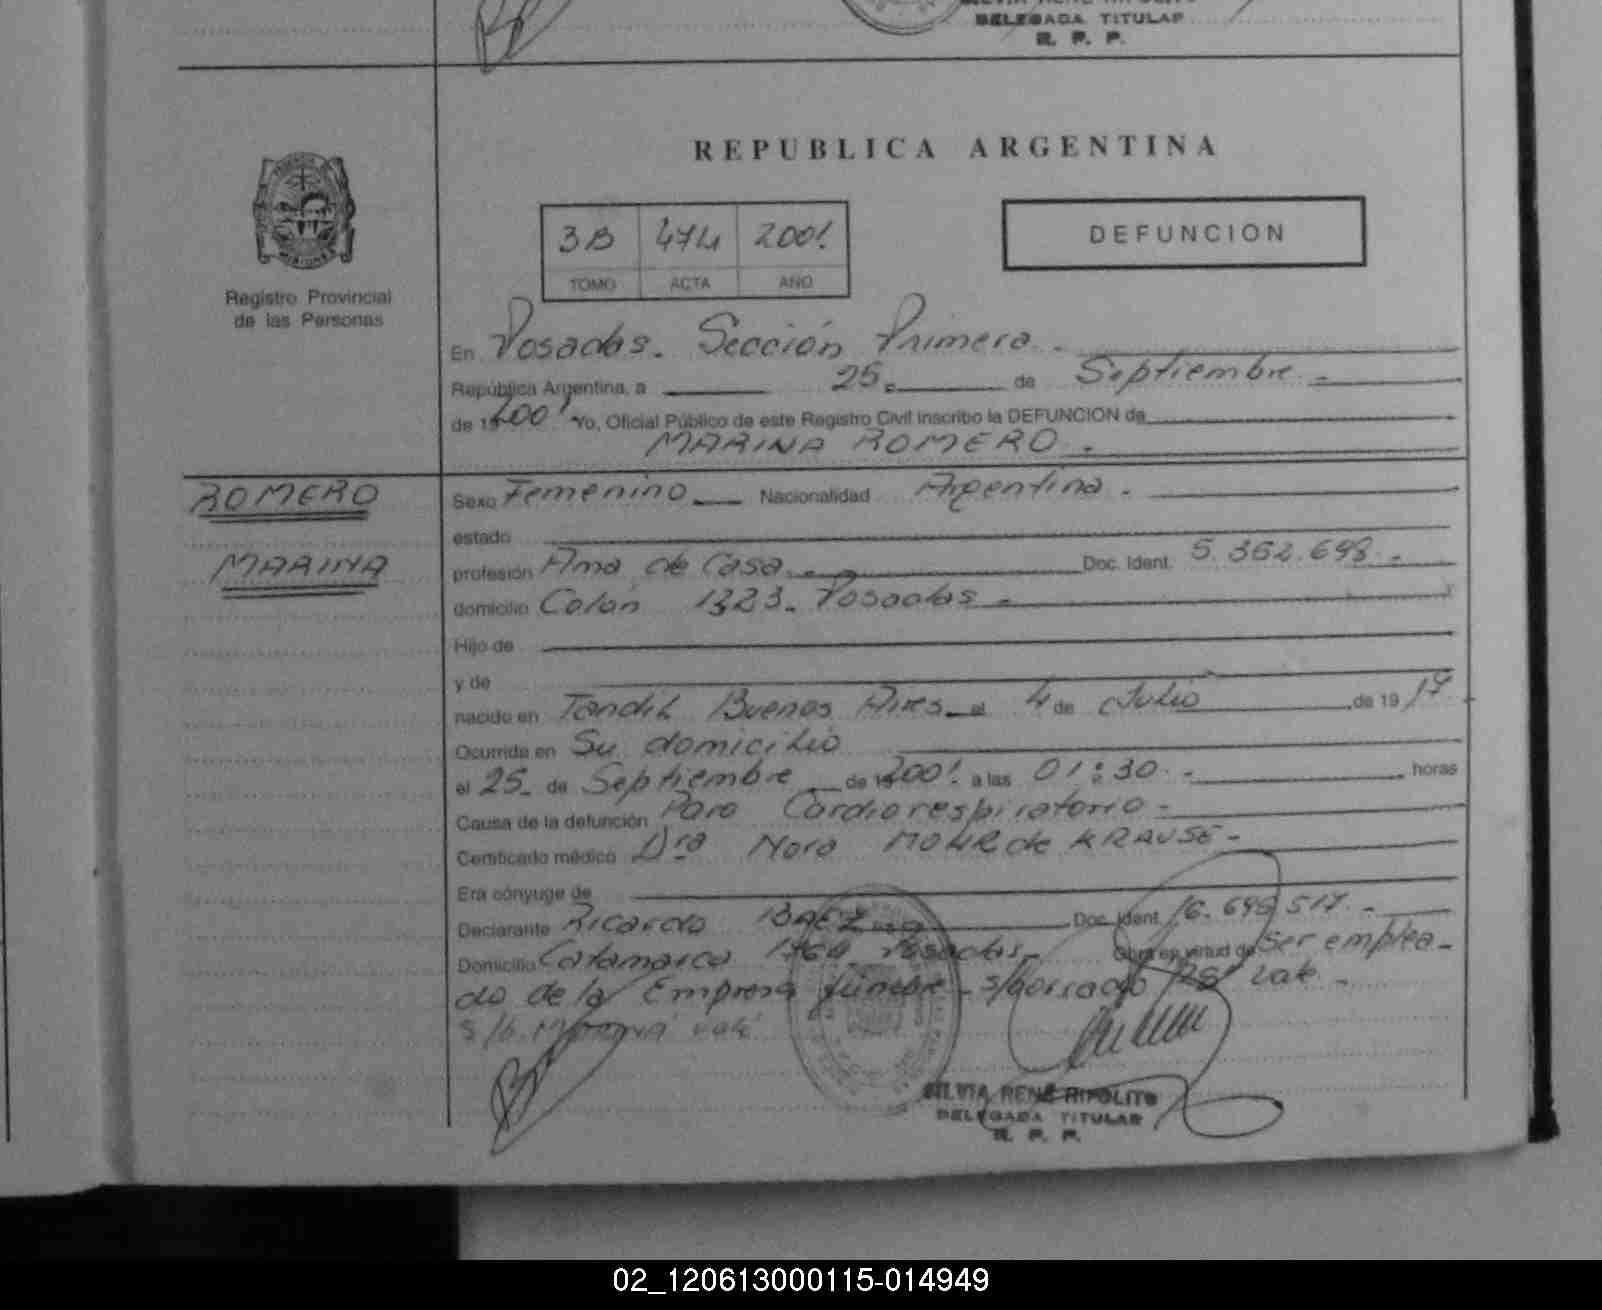 DELEGADA TITULAR
R. P. P.
REPUBLICA ARGENTINA
3B 474 2001
TOMO ACTA AÑO
DEFUNCION
Registro Provincial
de las Personas
En Posadas. Sección Primera.
República Argentina, a 25. de Septiembre.
de 19 2001 Yo, Oficial Público de este Registro Civil inscribo la DEFUNCION de
MARINA ROMERO.
ROMERO
MARINA
Sexo Femenino Nacionalidad Argentina.
estado
profesión Ama de Casa. Doc. Ident. 5.352.698.
domicilio Colón 1323. Posadas
Hijo de
y de
nacido en Tandil Buenos Aires el 4 de Julio de 19 17
Ocurrida en Su domicilio
el 25. de Septiembre de 19 2001. a las 01:30. horas
Causa de la defunción Paro Cardiorespiratorio.
Certificado médico Dra Nora MOHR de KRAUSE.
Era cónyuge de
Declarante Ricardo BAEZ Doc. Ident. 16.698.517.
Domicilio Catamarca Posadas. Obra en virtud de Ser emplea-
do de la Empresa fúnebre. s/borrado vale.
vale
SILVIA RENÉ RIPOLITO
DELEGADA TITULAR
R. P. P.
02_120613000115-014949